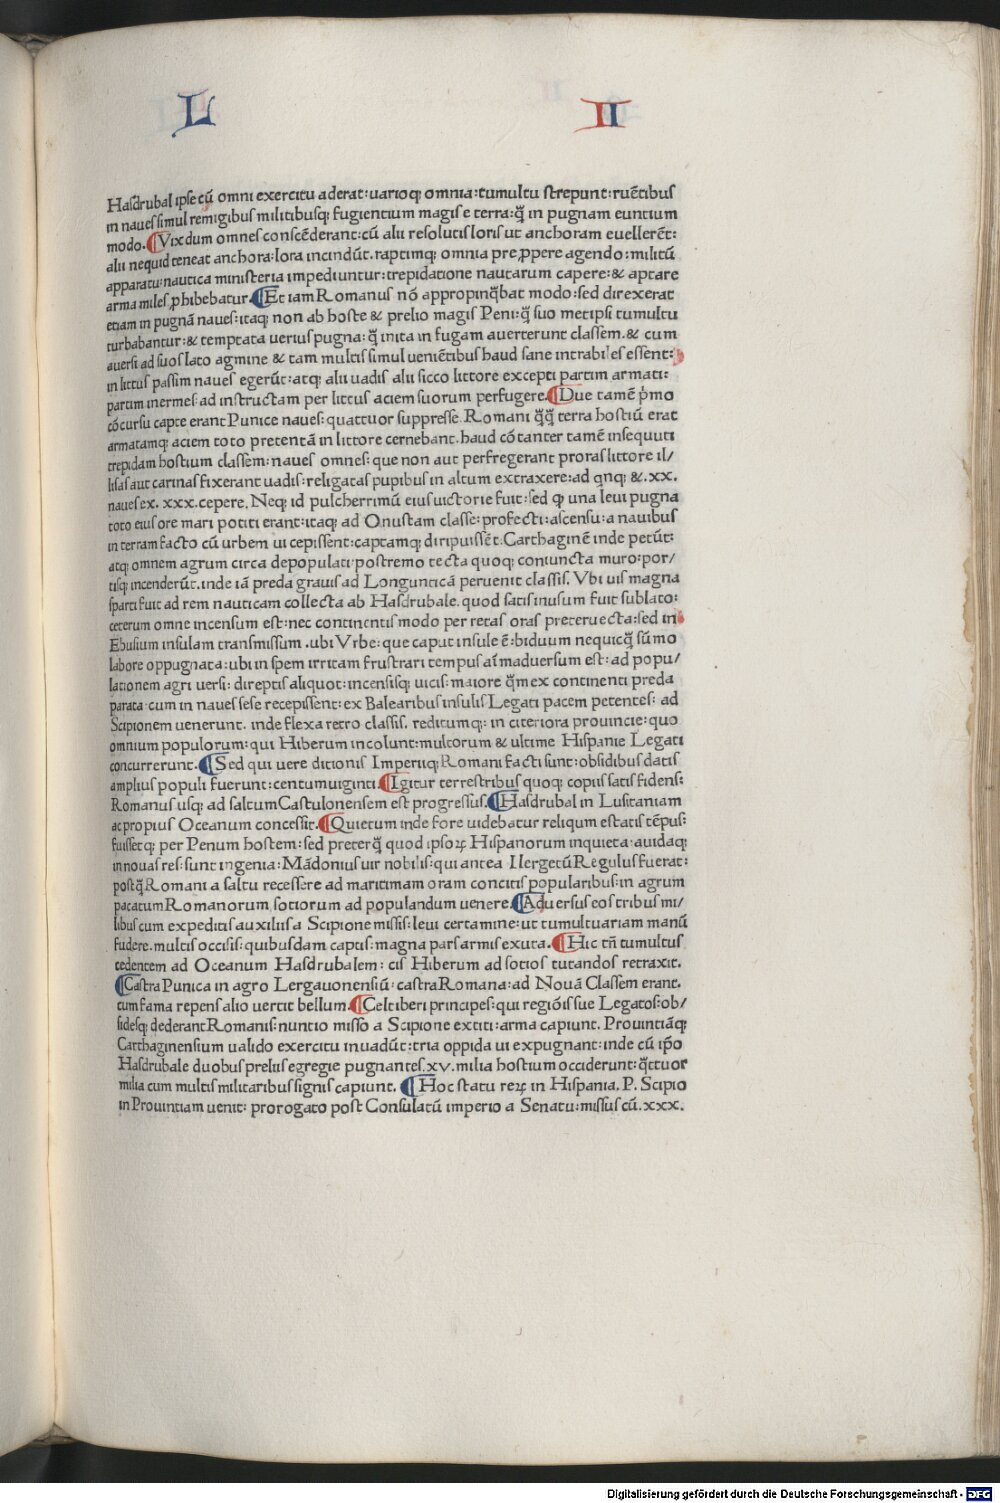 L II
Hasdrubal ipse cū omni exercitu aderat: uarioq; omnia: tumultu strepunt: ruētibus
in naues simul remigibus militibusq; fugientium magis e terra: q̄ in pugnam euntium
modo. Vix dum omnes conscēderant: cū alii resolutis loris ut anchoram euellerēt:
alii nequid teneat anchora: lora incindūt. raptimq; omnia preꝓpere agendo: militū
apparatu: nautica ministeria impediuntur: trepidatione nautarum capere: & aptare
arma miles ꝓhibebatur. Et iam Romanus nō appropinq̄bat modo: sed direxerat
etiam in pugnā naues: itaq; non ab hoste & prelio magis Peni: q̄ suo metipsi tumultu
turbabantur: & temptata uerius pugna: q̄ inita in fugam auerterunt classem. & cum
auersi ad suos lato agmine & tam multis simul ueniētibus haud sane intrabiles essent:
in littus passim naues egerūt: atq; alii uadis alii sicco littore excepti partim armati:
partim inermes: ad instructam per littus aciem suorum perfugere. Due tamē p̄mo
cōcursu capte erant Punice naues: quattuor suppresse. Romani q̄q̄ terra hostiū erat
armatamq; aciem toto pretentā in littore cernebant. haud cōtanter tamē insequuti
trepidam hostium classem: naues omnes: que non aut perfregerant proras littore il/
lisas aut carinas fixerant uadis: religatas pupibus in altum extraxere: ad qnq; &. xx.
naues ex. xxx. cepere. Neq; id pulcherrimū eius uictorie fuit: sed q una leui pugna
toto eius ore mari potiti erant: itaq; ad Onustam classe: profecti: ascensu: a nauibus
in terram facto cū urbem ui cepissent: captamq; diripuissēt. Carthaginē inde petūt:
atq; omnem agrum circa depopulati postremo tecta quoq; coniuncta muro: por/
tisq; incenderūt. inde iā preda grauis ad Longunticā peruenit classis. Vbi uis magna
sparti fuit ad rem nauticam collecta ab Hasdrubale. quod satis inusum fuit sublato:
ceterum omne incensum est: nec continentis modo per retas oras preteruecta: sed in
Ebusium insulam transmissum. ubi Vrbe: que caput insule ē: biduum nequicq̄ sūmo
labore oppugnata: ubi in spem irritam frustrari tempus aīmaduersum est: ad popu/
lationem agri uersi: direptis aliquot: incensisq; uicis: maiore q̄m ex continenti preda
parata cum in naues sese recepissent: ex Balearibus insulis Legati pacem petentes: ad
Scipionem uenerunt. inde flexa retro classis. reditumq; in citeriora prouincie: quo
omnium populorum: qui Hiberum incolunt: multorum & ultime Hispanie Legati
concurrerunt. Sed qui uere ditionis Imperiiq; Romani facti sunt: obsidibus datis
amplius populi fuerunt: centumuiginti. Igitur terrestribus quoq; copiis satis fidens:
Romanus usq; ad saltum Castulonensem est progressus. Hasdrubal in Lusitaniam
ac propius Oceanum concessit. Quietum inde fore uidebatur reliqum estatis tēpus:
fuissetq; per Penum hostem: sed preterq̄ quod ipsoꝝ Hispanorum inquieta: auidaq;
in nouas res: sunt ingenia: Mādonius uir nobilis: qui antea Ilergetū Regulus fuerat:
postq̄ Romani a saltu recessere ad maritimam oram concitis popularibus: in agrum
pacatum Romanorum sotiorum ad populandum uenere. Aduersus eos tribus mi/
libus cum expeditis auxiliis a Scipione missis: leui certamine: ut tumultuariam manū
fudere. multis occisis: quibusdam captis: magna pars armis exuta. Hic tn̄ tumultus
cedentem ad Oceanum Hasdrubalem: cis Hiberum ad sotios tutandos retraxit.
Castra Punica in agro Lergauonensiū: castra Romana: ad Nouā Classem erant.
cum fama repens alio uertit bellum. Celtiberi principes: qui regiōis sue Legatos: ob/
sidesq; dederant Romanis: nuntio misso a Scipione exciti: arma capiunt. Prouintiāq;
Carthaginensium ualido exercitu inuadūt: tria oppida ui expugnant: inde cū ip̄o
Hasdrubale duobus preliis egregie pugnantes. xv. milia hostium occiderunt: q̄ttuor
milia cum multis militaribus signis capiunt. Hoc statu reꝝ in Hispania. P. Scipio
in Prouintiam uenit: prorogato post Consulatū imperio a Senatu: missus cū. xxx.
Digitalisierung gefördert durch die Deutsche Forschungsgemeinschaft - DFG